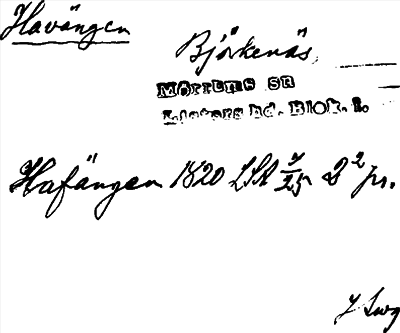 Havängen
Björkenäs,
Mörrums sn
Listers hd. Blek. l.
Hafängen 1820 LSA